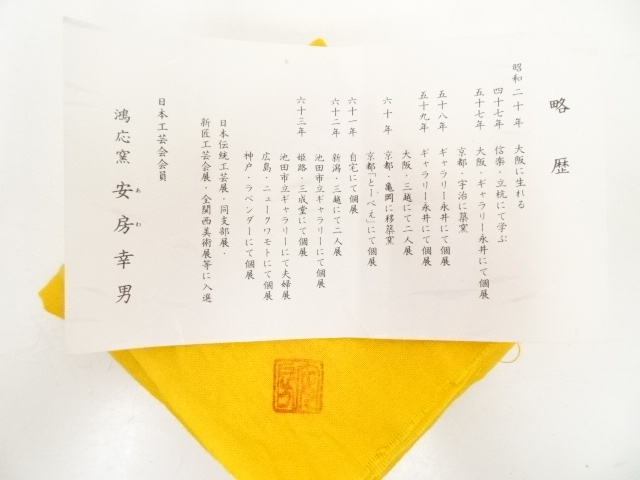 略歴
昭和二十年 大阪に生れる
四十七年 信楽・立杭にて学ぶ
五十七年 大阪・ギャラリー永井にて個展
京都・宇治に築窯
五十八年 ギャラリー永井にて個展
五十九年 ギャラリー永井にて個展
大阪・三越にて二人展
六十年 京都・亀岡に移築窯
京都「とーべえ」にて個展
六十一年 自宅にて個展
六十二年 新潟・三越にて二人展
池田市立ギャラリーにて個展
六十三年 姫路・三成堂にて個展
池田市立ギャラリーにて夫婦展
広島・ニュークワモトにて個展
神戸・ラベンダーにて個展
日本伝統工芸展・同支部展・
新匠工芸会展・全関西美術展等に入選
日本工芸会会員
鴻応窯 安房幸男
あわ